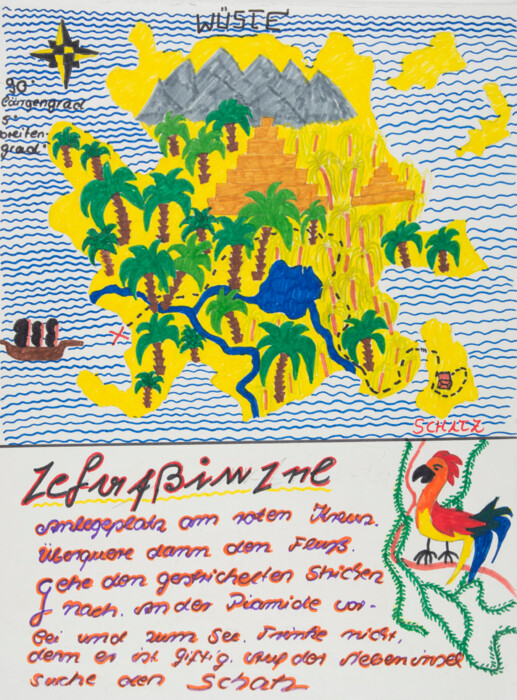 WÜSTE
90°
Längengrad
5°
breiten-
grad
SCHATZ
Anlegeplatz am roten Kreuz.
Überquere dann den Fluß.
Gehe den gestrichelten Strichen
nach. An der Piamide vor-
bei und zum See. Trinke nicht,
denn er ist giftig. Auf der Nebeninsel
suche den Schatz